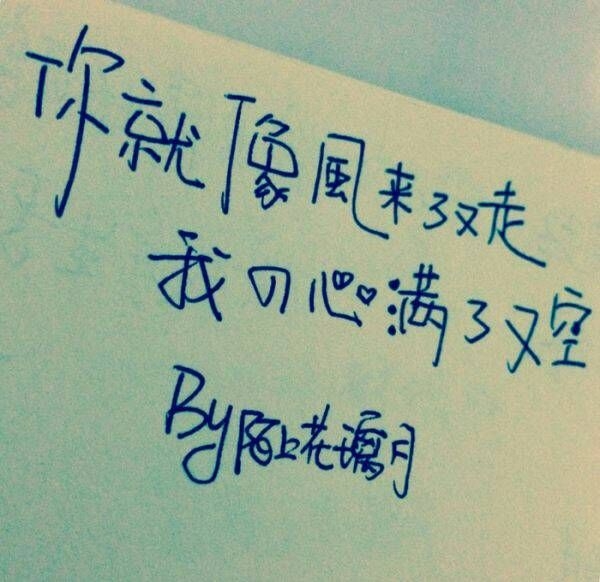 你就像風来了又走
我の心满了又空
By陌上花璃月